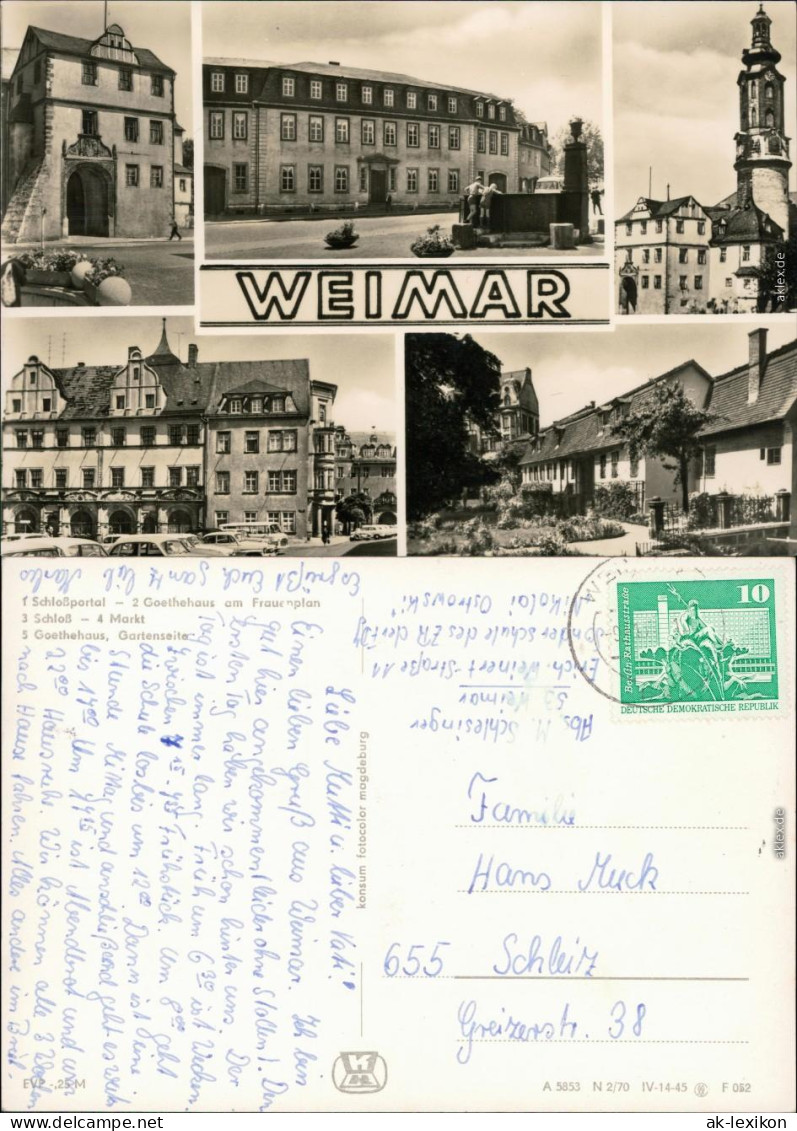 WEIMAR
aklex.de
1 Schloßportal – 2 Goethehaus am Frauenplan
3 Schloß – 4 Markt
5 Goethehaus, Gartenseite
Liebe Mutti u. lieber Vati!
Einen lieben Gruß aus Weimar. Ich bin
gut hier angekommen (leider ohne Stollen). Den
ersten Tag haben wir schon hinter uns. Der
Tag ist immer lang. Früh um 6³⁰ ist Wecken.
Zwischen 7¹⁵-7⁴⁵ Frühstück. Um 8⁰⁰ geht
die Schule los bis um 12⁰⁰. Dann ist eine
Stunde Mittag und anschließend geht es weiter
bis 17⁰⁰. Um 17⁴⁵ ist Abendbrot und um
22⁰⁰ Hausruhe. Wir können alle 3 Wochen
nach Hause fahren. Alles andere im Brief.
Es grüßt Euch
EVP -,25 M
konsum fotocolor magdeburg
Abs. M. Schlesinger
53 Weimar
Erich-Weinert-Straße 11
Sonderschule des ZR der FDJ
"Nikolai Ostrowski"
10
Berlin, Rathausstraße
DEUTSCHE DEMOKRATISCHE REPUBLIK
Familie
Hans Muck
655 Schleiz
Greizerstr. 38
aklex.de
A 5853 N 2/70 IV-14-45 F 052
www.delcampe.net
ak-lexikon